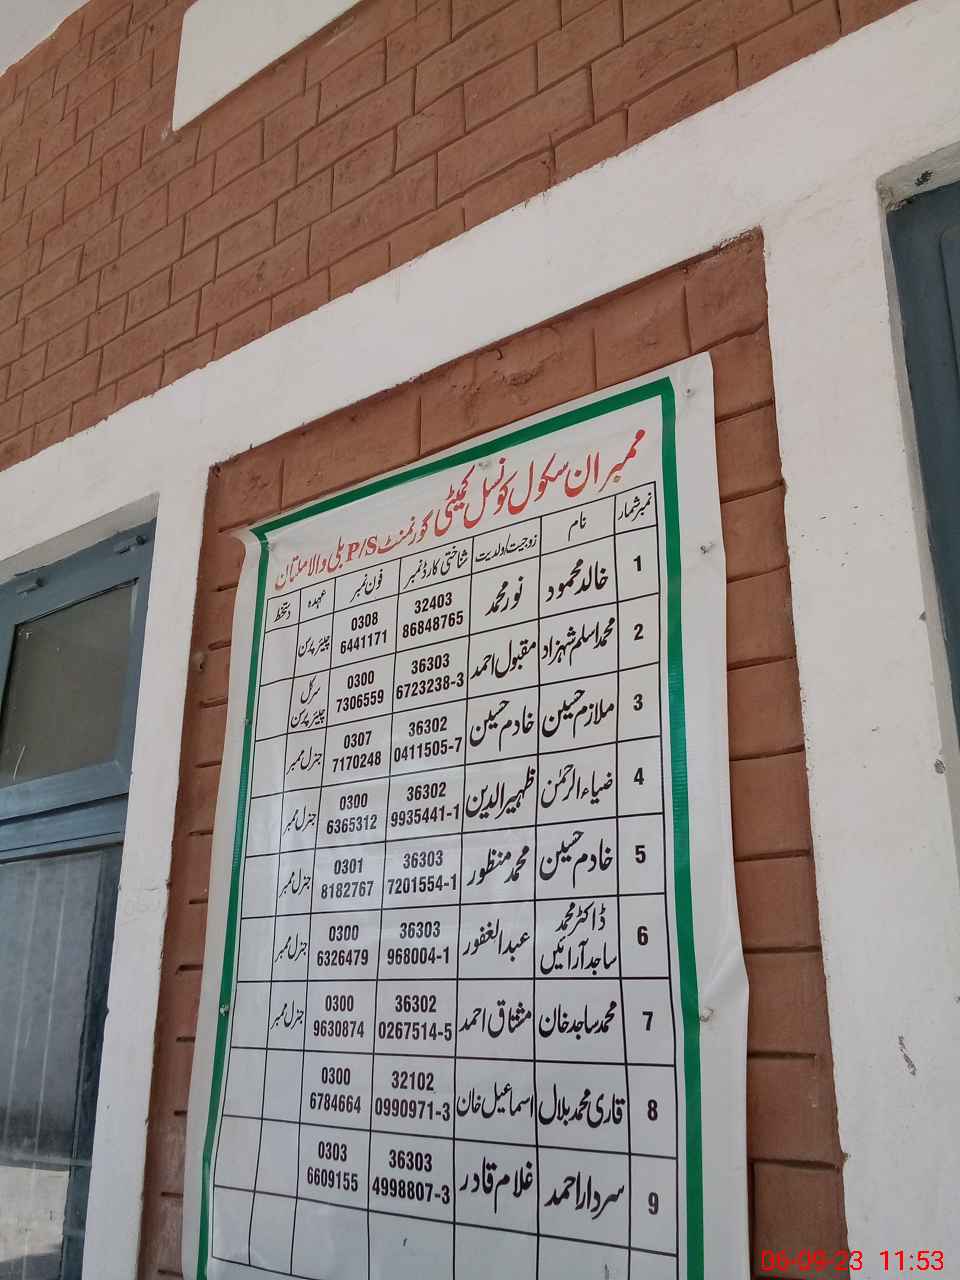 ممبران سکول کونسل کمیٹی گورنمنٹ P/S بلی والا ملتان
نمبر شمار نام زوجیت/ولدیت شناختی کارڈ نمبر فون نمبر عہدہ دستخط
1 خالد محمود نور محمد 32403 86848765 0308 6441171 چیئر پرسن
2 محمد اسلم شہزاد مقبول احمد 36303 6723238-3 0300 7306559 سرکل چیئر پرسن
3 ملازم حسین خادم حسین 36302 0411505-7 0307 7170248 جنرل ممبر
4 ضیاء الرحمٰن ظہیر الدین 36302 9935441-1 0300 6365312 جنرل ممبر
5 خادم حسین محمد منظور 36303 7201554-1 0301 8182767 جنرل ممبر
6 ڈاکٹر محمد ساجد آرائیں عبدالغفور 36303 968004-1 0300 6326479 جنرل ممبر
7 محمد ساجد خان مشتاق احمد 36302 0267514-5 0300 9630874 جنرل ممبر
8 قاری محمد بلال اسماعیل خان 32102 0990971-3 0300 6784664
9 سردار احمد غلام قادر 36303 4998807-3 0303 6609155
06-09-23 11:53